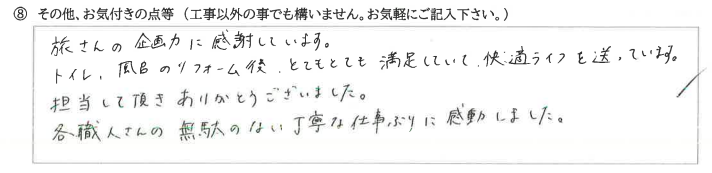 ⑧ その他、お気付きの点等（工事以外の事でも構いません。お気軽にご記入下さい。）
旅さんの企画力に感謝しています。
トイレ、風呂のリフォーム後、とてもとても満足していて、快適ライフを送っています。
担当して頂きありがとうございました。
各職人さんの無駄のない丁寧な仕事ぶりに感動しました。